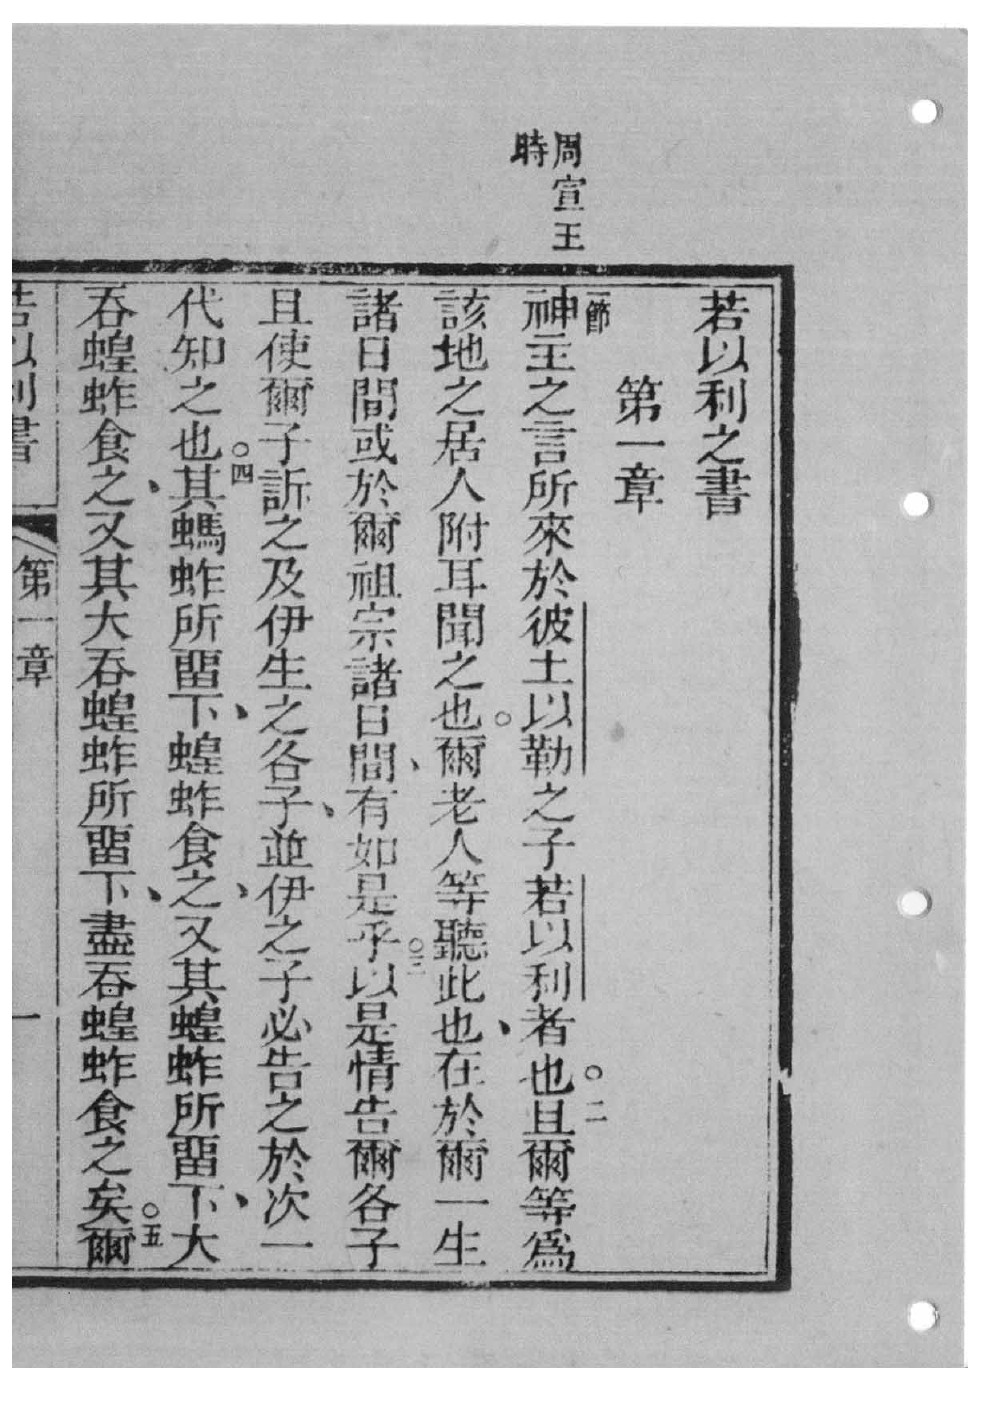 周宣王
時
若以利之書
第一章
一節
神主之言所來於彼土以勒之子若以利者也○二且爾等為
該地之居人附耳聞之也○爾老人等聽此也、在於爾一生
諸日間或於爾祖宗諸日間、有如是乎○三以是情告爾各子
且使爾子訴之及伊生之各子、並伊之子必告之於次一
代知之也○四其螞蚱所留下、蝗蚱食之、又其蝗蚱所留下、大
吞蝗蚱食之、又其大吞蝗蚱所留下、盡吞蝗蚱食之矣○五爾
若以利書
第一章
一